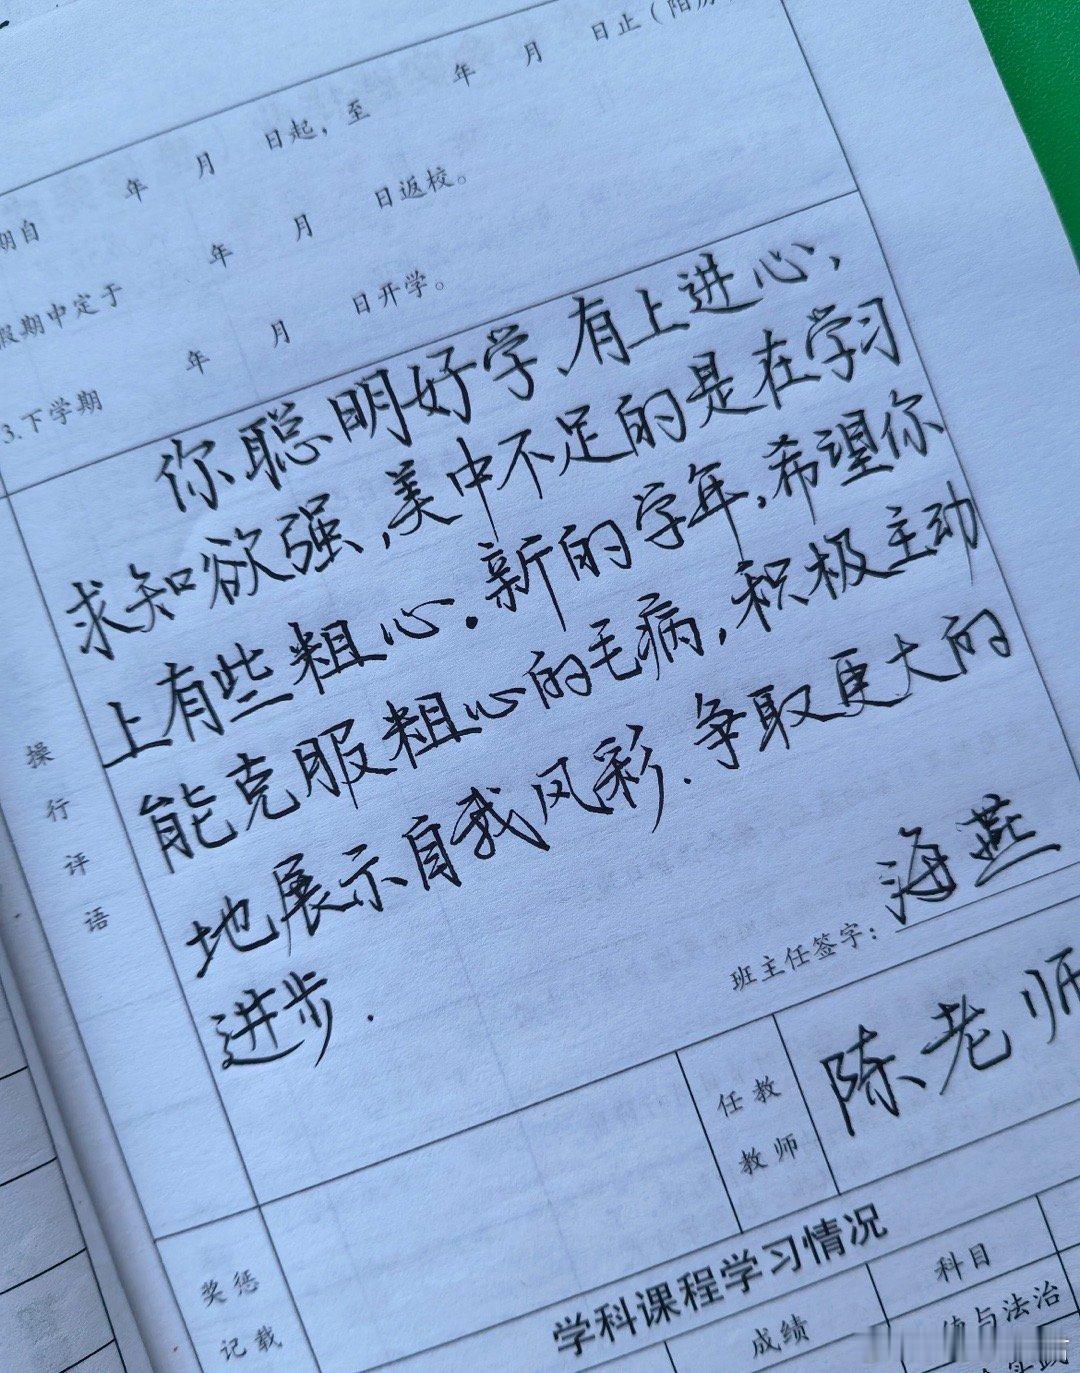 期自 年 月 日起，至 年 月 日止（阳历
假期中定于 年 月 日返校。
3.下学期 年 月 日开学。
操行评语
你聪明好学、有上进心，
求知欲强，美中不足的是在学习
上有些粗心．新的学年，希望你
能克服粗心的毛病，积极主动
地展示自我风彩．争取更大的
进步．
班主任签字：海燕
任教教师 陈老师
奖惩记载
学科课程学习情况
成绩 科目
与法治